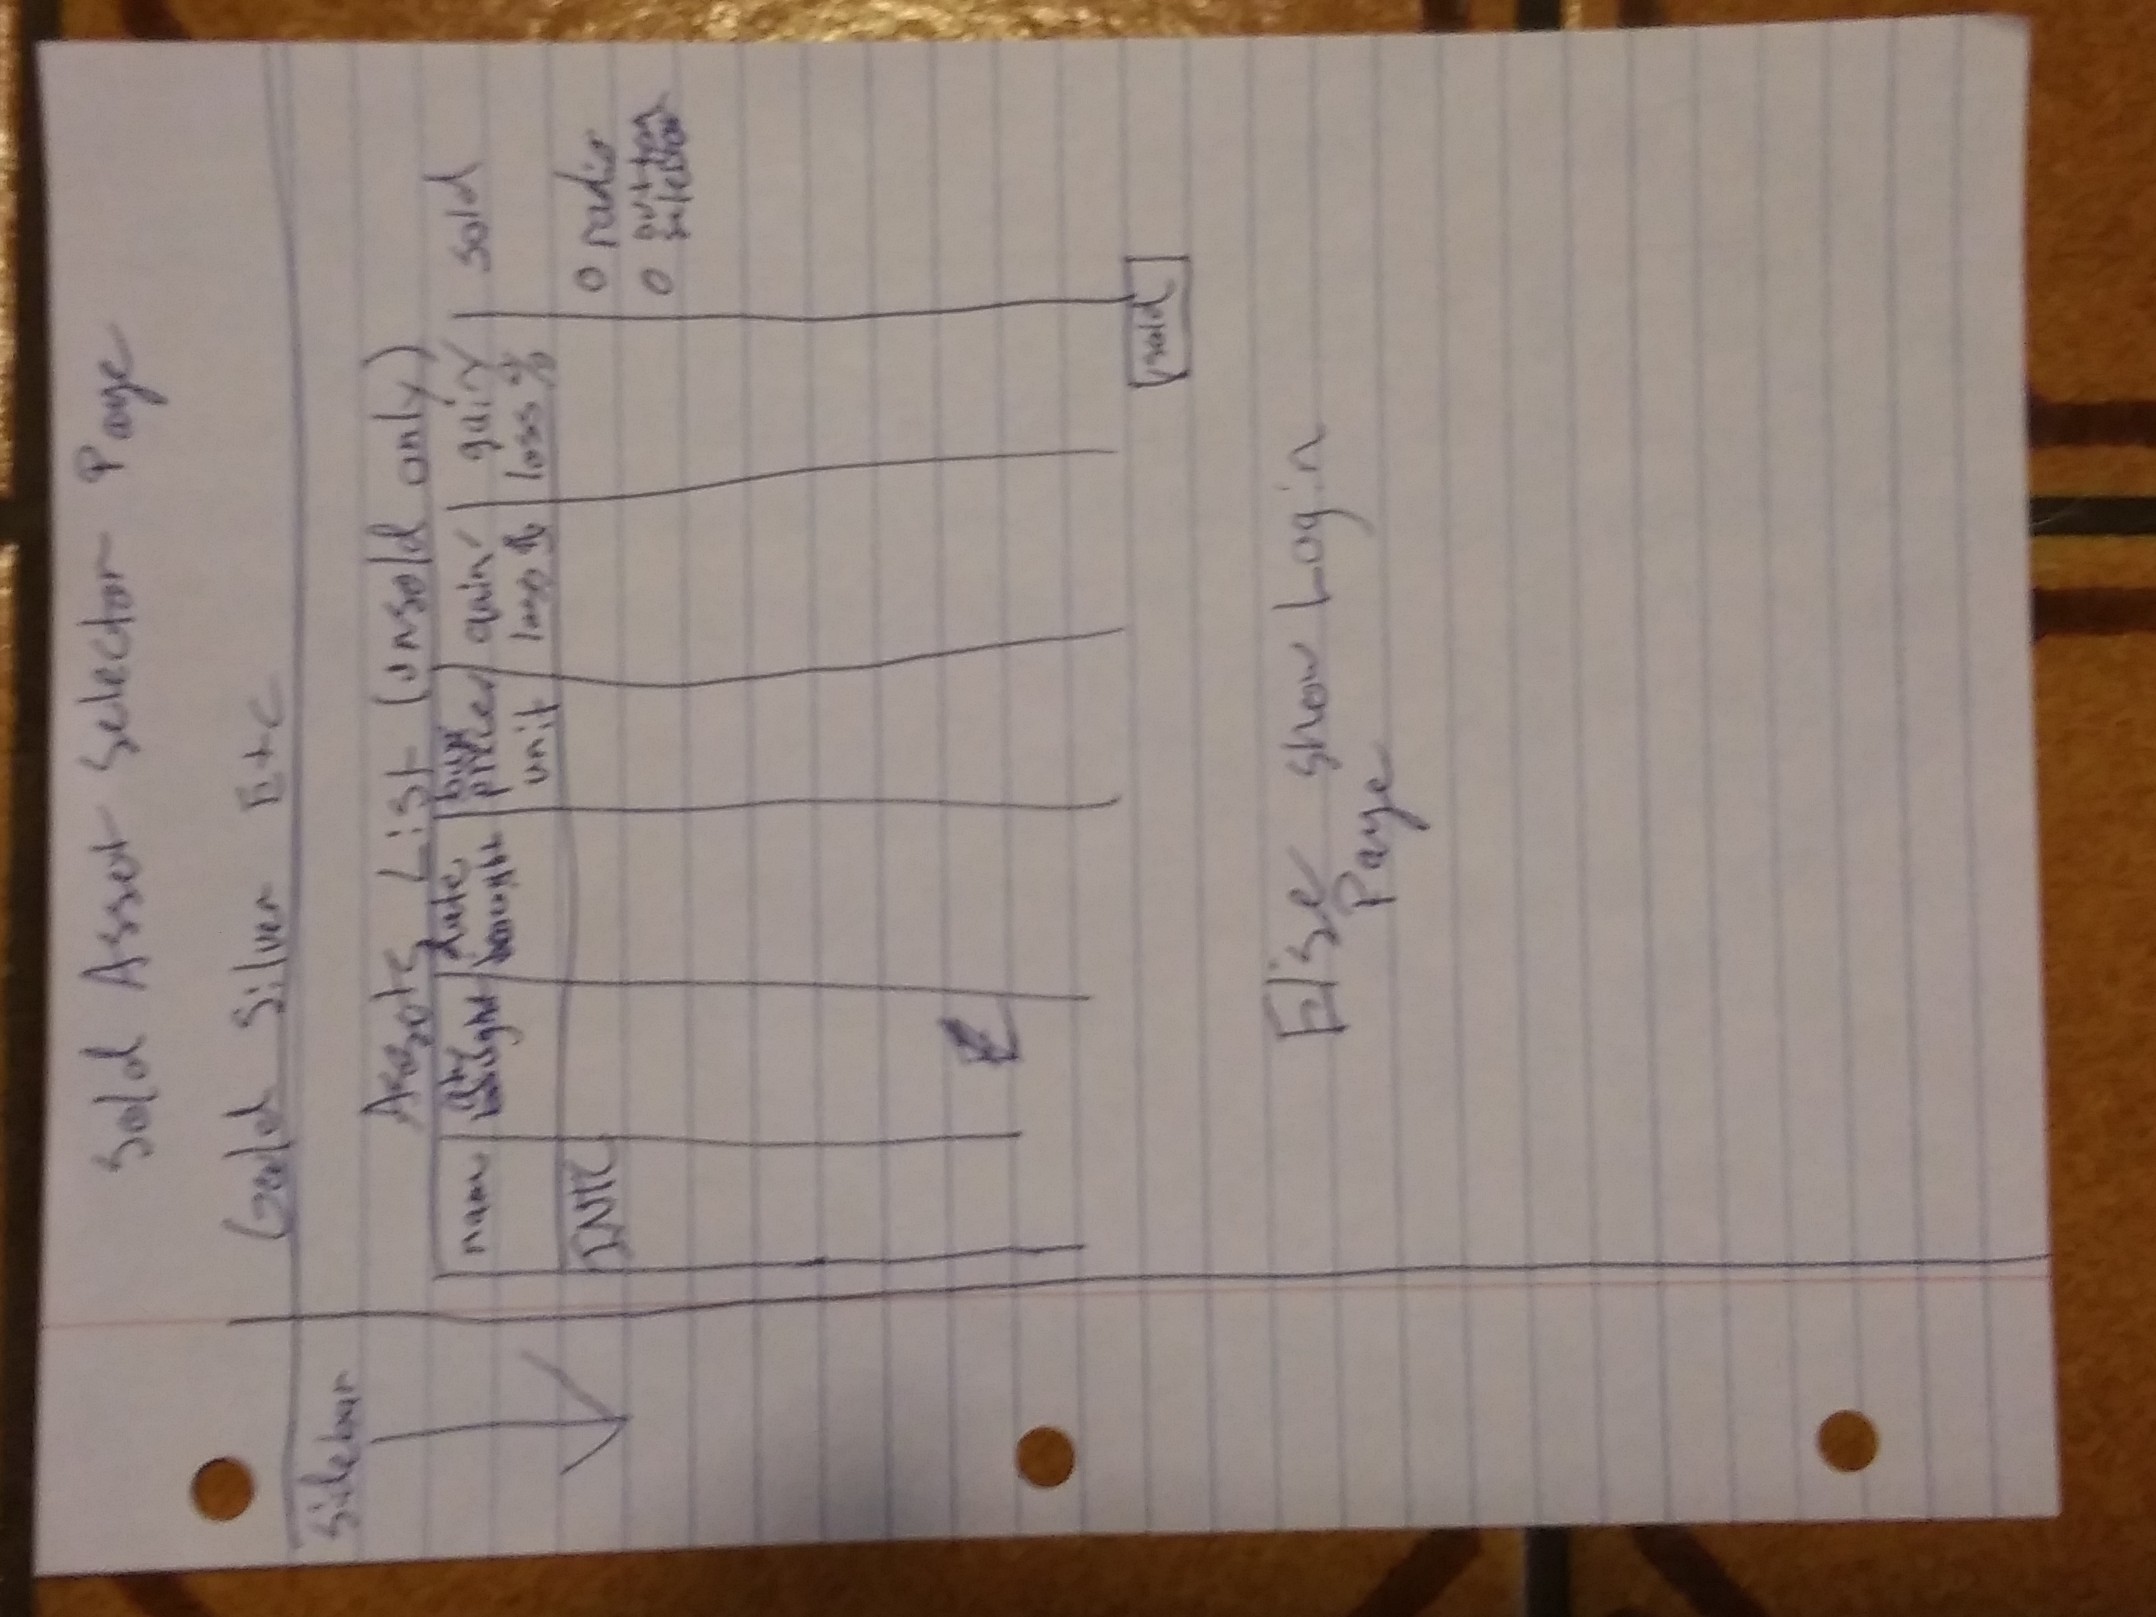 Sold Asset Selector Page
Gold Silver Etc
Sidebar
Assets List (unsold only)
name
qty bought
date bought
buy price/ unit
gain/ loss $
gain/ loss %
sold
INTC
radio
button
selector
sold
Else show Login
Page